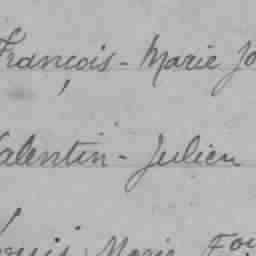 François - Marie Jo
Valentin - Julien
Louis Marie Fou